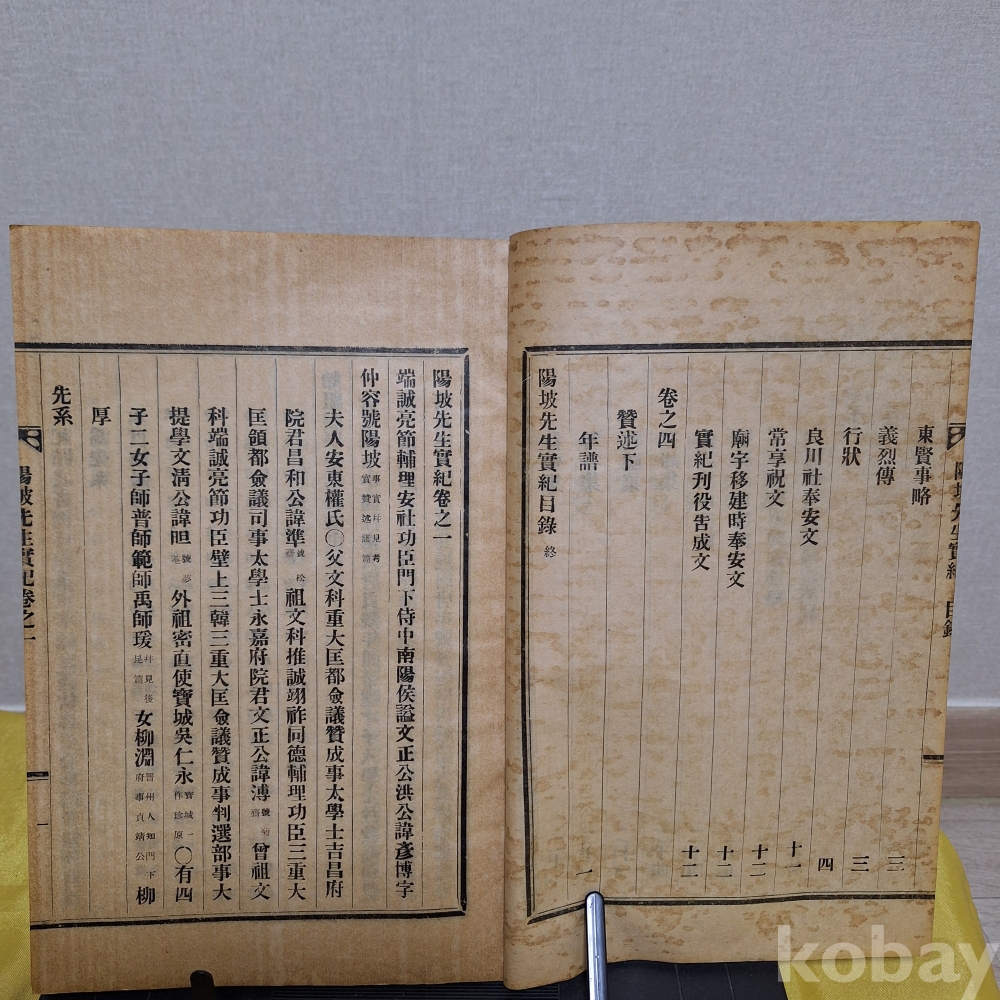 東賢事略 三
義烈傳 三
行狀 四
良川社奉安文 十一
常享祝文 十二
廟宇移建時奉安文 十二
實紀刋役告成文 十二
卷之四
贊述下
年譜 一
陽坡先生實紀目錄 終
陽坡先生實紀卷之一
端誠亮節輔理安社功臣門下侍中南陽侯謚文正公洪公諱彥博字
仲容號陽坡 事實並見考實贊述諸篇
夫人安東權氏〇父文科重大匡都僉議贊成事太學士吉昌府
院君昌和公諱準 號松齋 祖文科推誠翊祚同德輔理功臣三重大
匡領都僉議司事太學士永嘉府院君文正公諱溥 號菊齋 曾祖文
科端誠亮節功臣壁上三韓三重大匡僉議贊成事判選部事大
提學文淸公諱㫜 號夢菴 外祖密直使寶城吳仁永 寶城一作珍原 〇有四
子二女子師普師範師禹師瑗 並見後昆篇 女柳淵 晋州人知門下府事貞靖公 柳
厚
先系
陽坡先生實紀 目錄
陽坡先生實紀卷之一 一
kobay